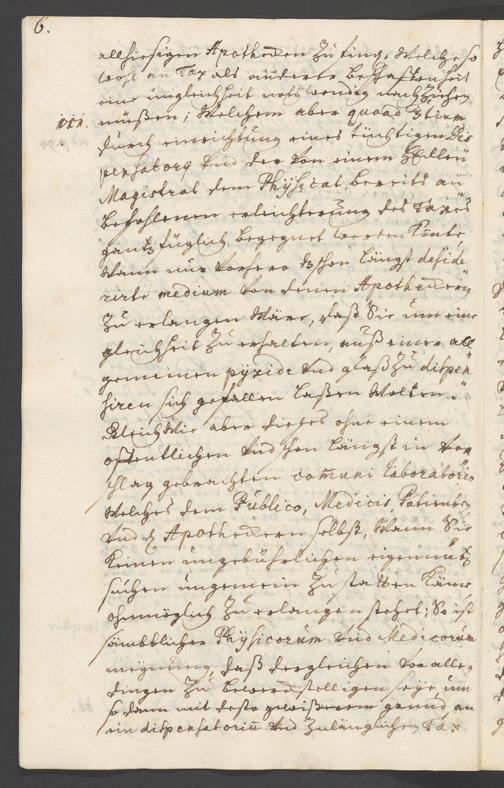 6.
allhiesigen Apothecken zu king, Welche so
wohl an Tax als anderer beschaffenheit
eine ungleichheit nothwendig nach ziehen
müßen; Welchem aber quoad
durch einrichtung eines tüchtigen Dis
pensatorij Und der von einem Hochen
Magistrat dem Physicat bereits an
befohlenen erleichterung des Taxes
gantz füglich begegnet werden könte,
Wann nur vorhero schon längst deside
rirte medium von denen Apotheckern
zu erlangen Wäre, daß Sie um eine
gleichheit zu erhalten, auß einer all
gemeinen pyxide Und glaß zu dispen
siren sich gefallen laßen Wolten.
Gleich Wie aber dießes ohne einem
öffentlichen Und schon längst in Vor
schlag gebrachten comuni laboratorio
Welches dem Publico, Medicis Patienten
Und Apotheckern selbst, Wann Sie
keinen ungebührlichen eigennutz
suchen ungemein zu statten käme
ohnmöglich zu erlangen stehet; So ist
sämbtlicher Physicorum Und Medicorum
meynung, daß dergleichen vor allen
dingen zu bewerckstelligen seye, um
so dann mit desto gewißerem grund an
ein dispensatorium Und zulänglichen Tax